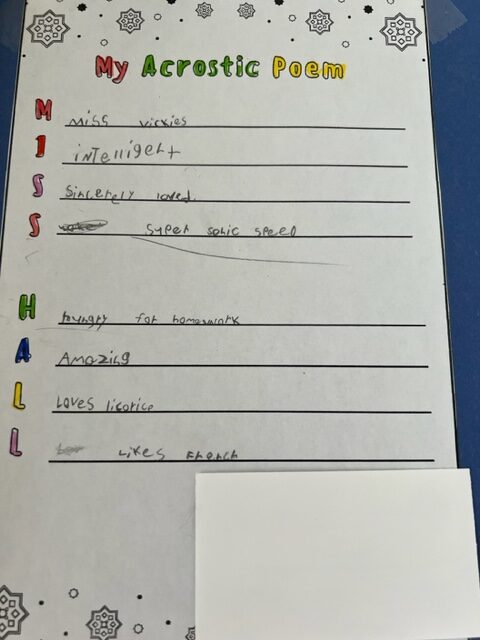 My Acrostic Poem
M Miss vickies
I intelligent
S Sincerely loved.
S Super sonic speed
H hungry for homework
A Amazing
L Loves licorice
L Likes French